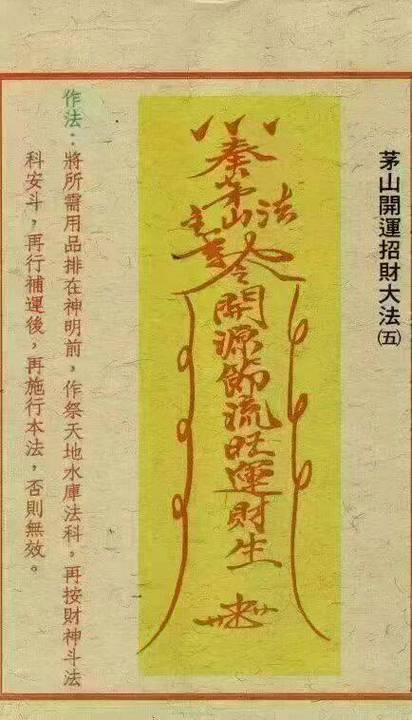 茅山開運招財大法㈤
茅山法
令
開源節流旺運財生
作法：將所需用品排在神明前，作祭天地水庫法科，再按財神斗法
科安斗，再行補運後，再施行本法，否則無效。